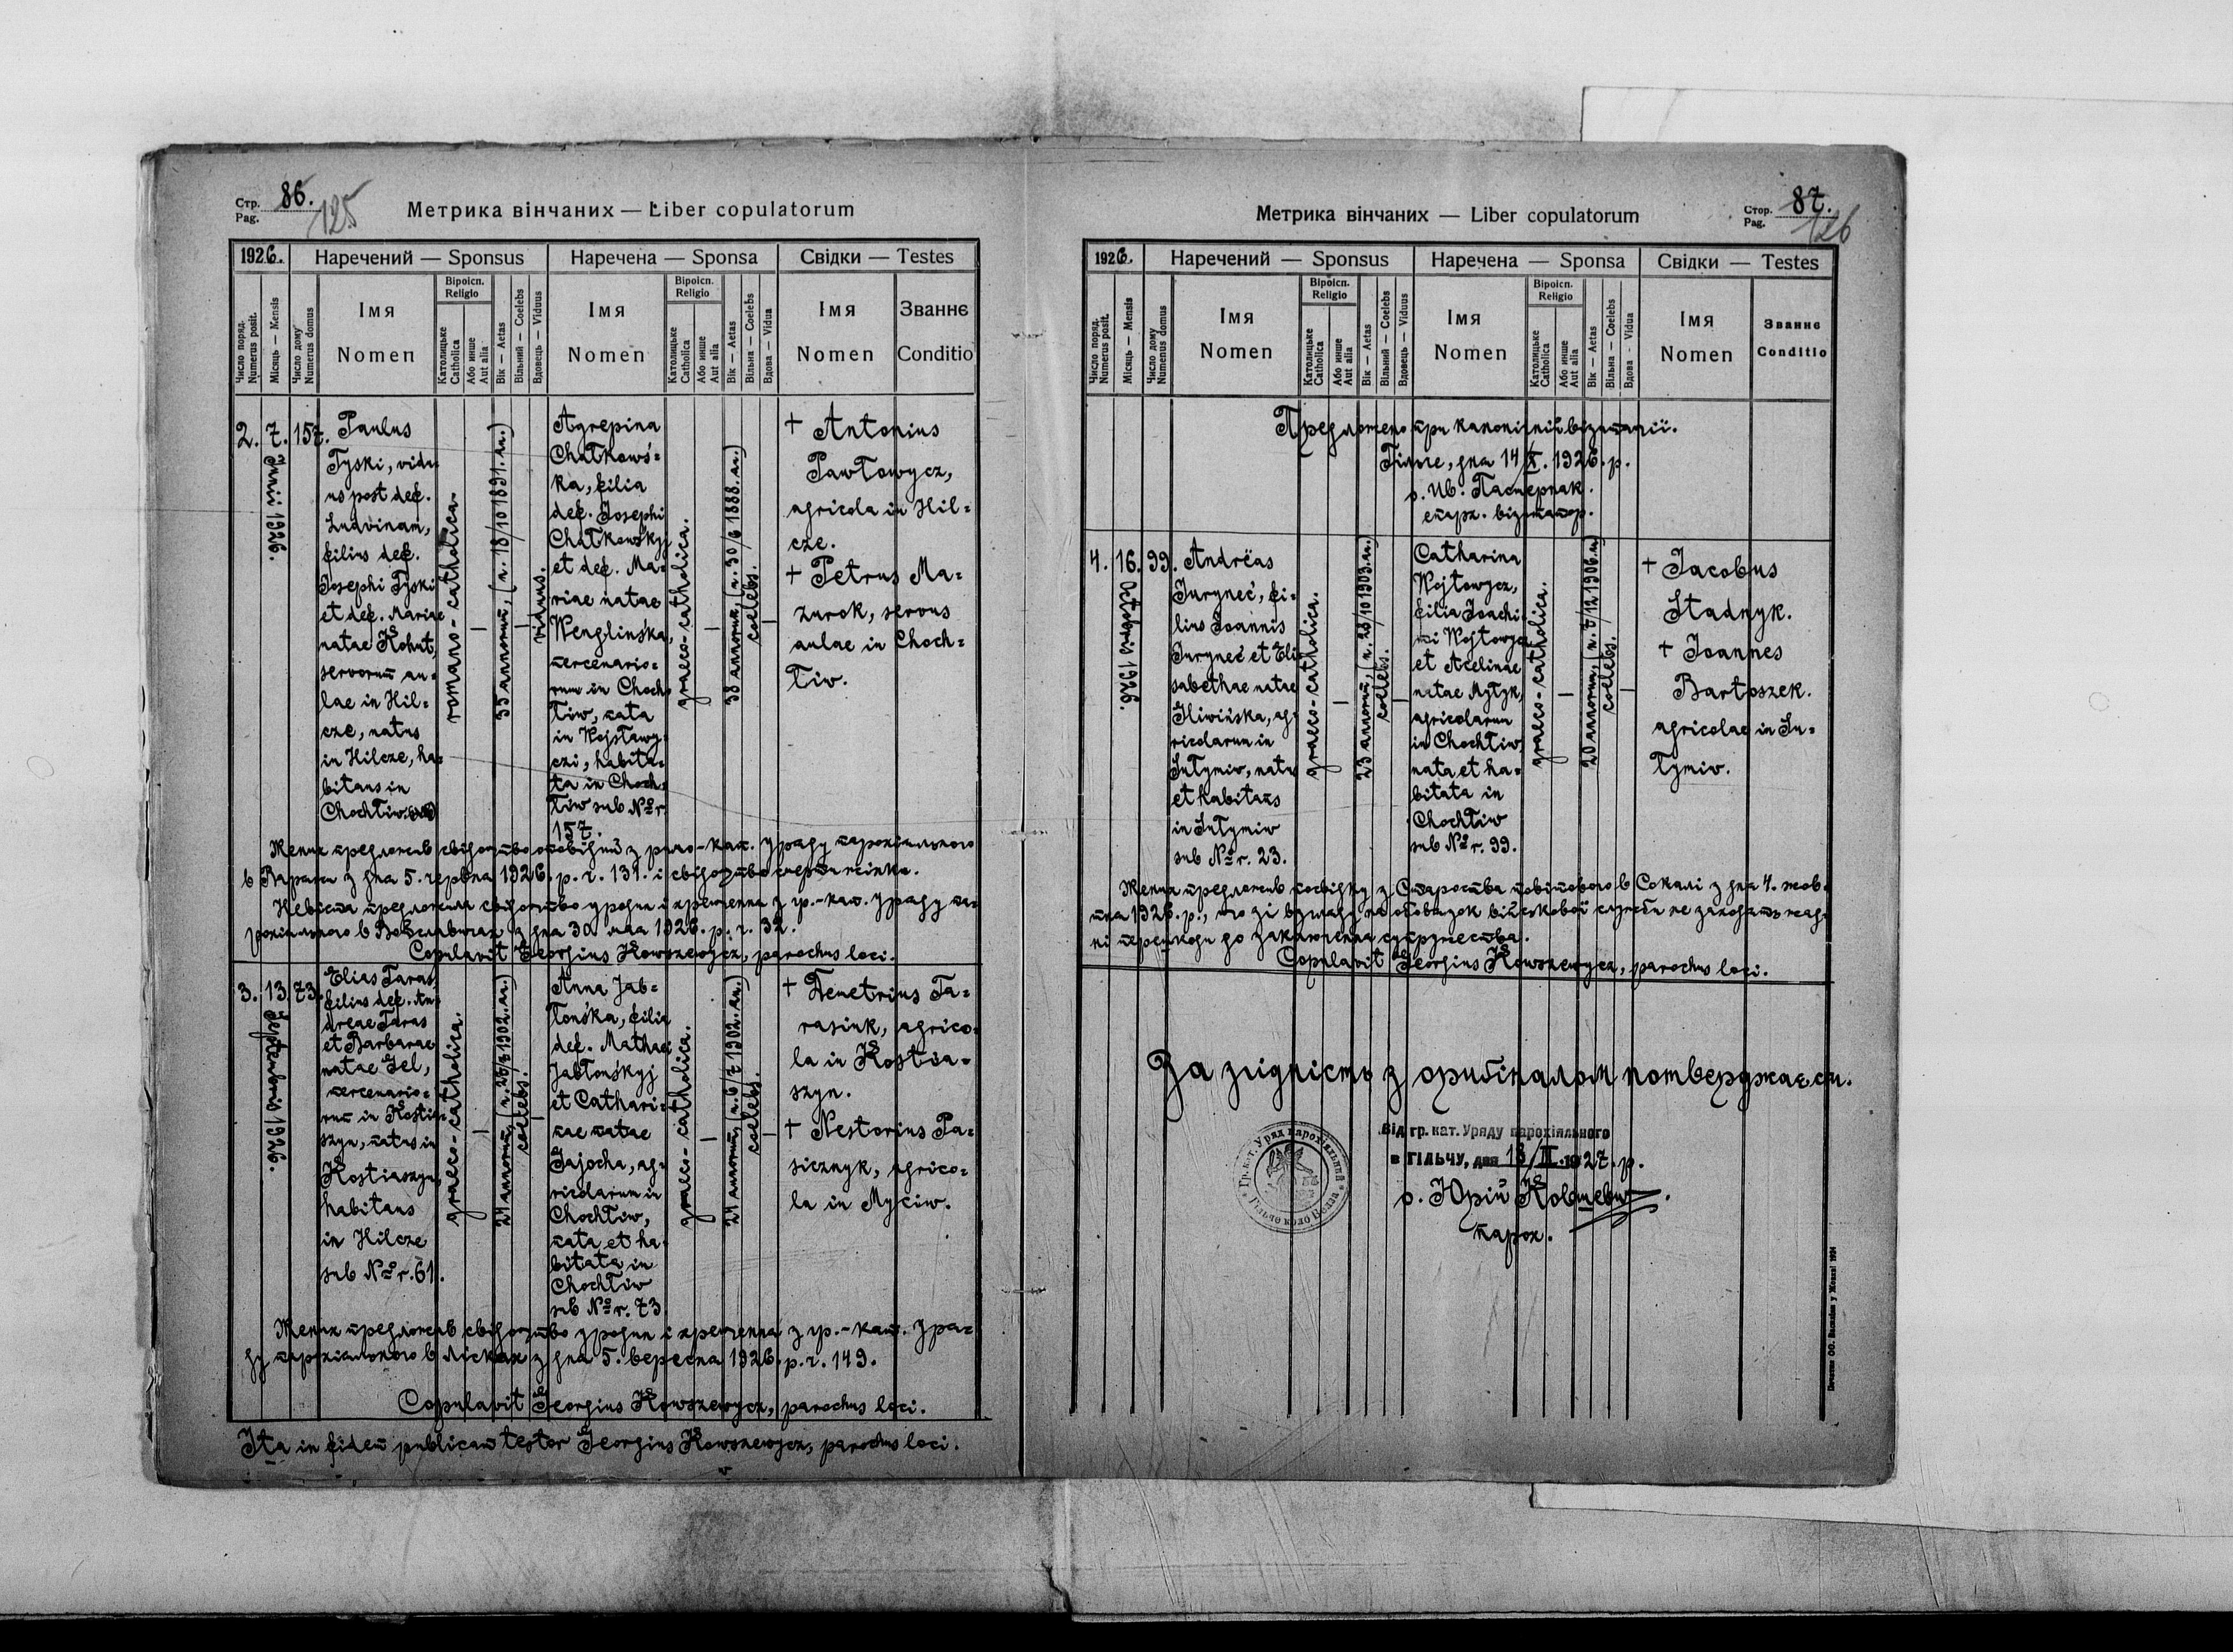 Стр.
Pag. 86.
125
Метрика вінчаних — Liber copulatorum
1926. Наречений — Sponsus Наречена — Sponsa Свідки — Testes
Число поряд.
Numerus posit.
Місяць — Mensis
Число дому
Numerus domus
Імя
Nomen
Віроісп.
Religio
Католицьке
Catholica
Або инше
Aut alia
Вік — Aetas
Вільний — Coelebs
Вдовець — Viduus
Імя
Nomen
Віроісп.
Religio
Католицьке
Catholica
Або инше
Aut alia
Вік — Aetas
Вільна — Coelebs
Вдова — Vidua
Імя
Nomen
Званнє
Conditio
2. 7. Junii 1926. 157.
Paulus
Tyski, vidu
us post def.
Ludvinam,
filius def.
Josephi Tyski
et def. Mariae
natae Kohut,
servorum au=
lae in Hil=
cze, natus
in Hilcze, ha=
bitans in
Chochłiw.
romano-catholica.
—
35 annorum, (n. 18/10 1891. an.)
—
viduus.
Agrepina
Chałkowś=
ka, filia
def. Josephi
Chałkowśkyj
et def. Ma=
riae natae
Wenglinśka,
mercenario=
rum in Choch=
łiw, nata
in Wojsławy=
czi, habita=
ta in Choch=
łiw sub № r.
157.
graeco-catholica.
—
38 annorum, (n. 30/6 1888. an.)
coelebs.
—
+ Antonius
Pawłowycz,
agricola in Hil=
cze.
+ Petrus Ma=
zurok, servus
aulae in Choch=
łiw.
Жених предложив свідоцтво оповідий з римо-кат. уряду парохіяльного
в Варяжи з дня 5. червня 1926. р. ч. 131. і свідоцтво смерти жінки.
Невіста предложила свідоцтво уродин і хрещення з гр.-кат. уряду па=
рохіяльного в Войславичах з дня 30. мая 1926. р. ч. 32.
Copulavit Georgius Kowszewycz, parochus loci.
3. 13. Septembris 1926. 73.
Elias Taras,
filius def. An=
dreae Taras
et Barbarae
natae Gel,
mercenario=
rum in Kostia=
szyn, natus in
Kostiaszyn,
habitans
in Hilcze
sub № r. 61.
graeco-catholica.
—
coelebs.
—
Anna Jab=
łonśka, filia
def. Mathaei
Jabłonśkyj
et Cathari=
nae natae
Gajocha, ag=
ricolarum in
Chochłiw,
nata et ha=
bitata in
Chochłiw
sub № r. 73
graeco-catholica.
—
coelebs.
—
+ Demetrius Ta=
rasiuk, agrico=
la in Kostia=
szyn.
+ Nestorius Pa=
sicznyk, agrico=
la in Myciw.
Жених предложив свідоцтво уродин і хрещення з гр.-кат. уря=
ду парохіяльного в Лісках з дня 5. вересня 1926. р. ч. 149.
Copulavit Georgius Kowszewycz, parochus loci.
Ita in fidem publicam testor Georgius Kowszewycz, parochus loci.
Метрика вінчаних — Liber copulatorum
Стор.
Pag. 87.
126
1926. Наречений — Sponsus Наречена — Sponsa Свідки — Testes
Число поряд.
Numerus posit.
Місяць — Mensis
Число дому
Numenus domus
Імя
Nomen
Віроісп.
Religio
Католицьке
Catholica
Або инше
Aut alia
Вік — Aetas
Вільний — Coelebs
Вдовець — Viduus
Імя
Nomen
Віроісп.
Religio
Католицьке
Catholica
Або инше
Aut alia
Вік — Aetas
Вільна — Coelebs
Вдова - Vidua
Імя
Nomen
Званнє
Conditio
Предложено при канонічній візитації.
Гільче, дня 14/X. 1926. р.
о. Ив. Пастернак.
епарх. візитатор.
4. 16. Octobris 1926. 99.
Andrëas
Juryneć, fi=
lius Joannis
Juryneć et Eli=
sabethae natae
Hliwińska, ag=
ricolarum in
Sułymiw, natus
et habitans
in Sułymiw
sub № r. 23.
graeco-catholica.
—
23 annorum, (n. 28/10 1903. an.)
coelebs.
—
Catharina
Wojtowycz,
filia Joachi=
mi Wojtowycz
et Acelinae
natae Mytyk,
agricolarum
in Chochłiw,
nata et ha=
bitata in
Chochłiw
sub № r. 99.
graeco-catholica.
—
20 annorum, (n. 7/12 1906. an.)
coelebs.
—
+ Jacobus
Stadnyk.
+ Joannes
Bartoszek.
agricolae in Su=
łymiw.
Жених предложив посвідку з Староства повітового в Сокалі з дня 4. жов=
тня 1926. р., що зі взгляду на обовязок військової служби не заходять жад=
ні перешкоди до заключення супружества.
Copulavit Georgius Kowszewycz, parochus loci.
За згідність з оригіналом потверджаєся.
Від гр. кат. Уряду парохіяльного
в ГІЛЬЧУ, дня 13/II. 1927. р.
о. Юрій Ковшевич.
парох.
Гр. кат. Уряд парохіяльний
Печатня ОО. Василіян у Жовкві 1924